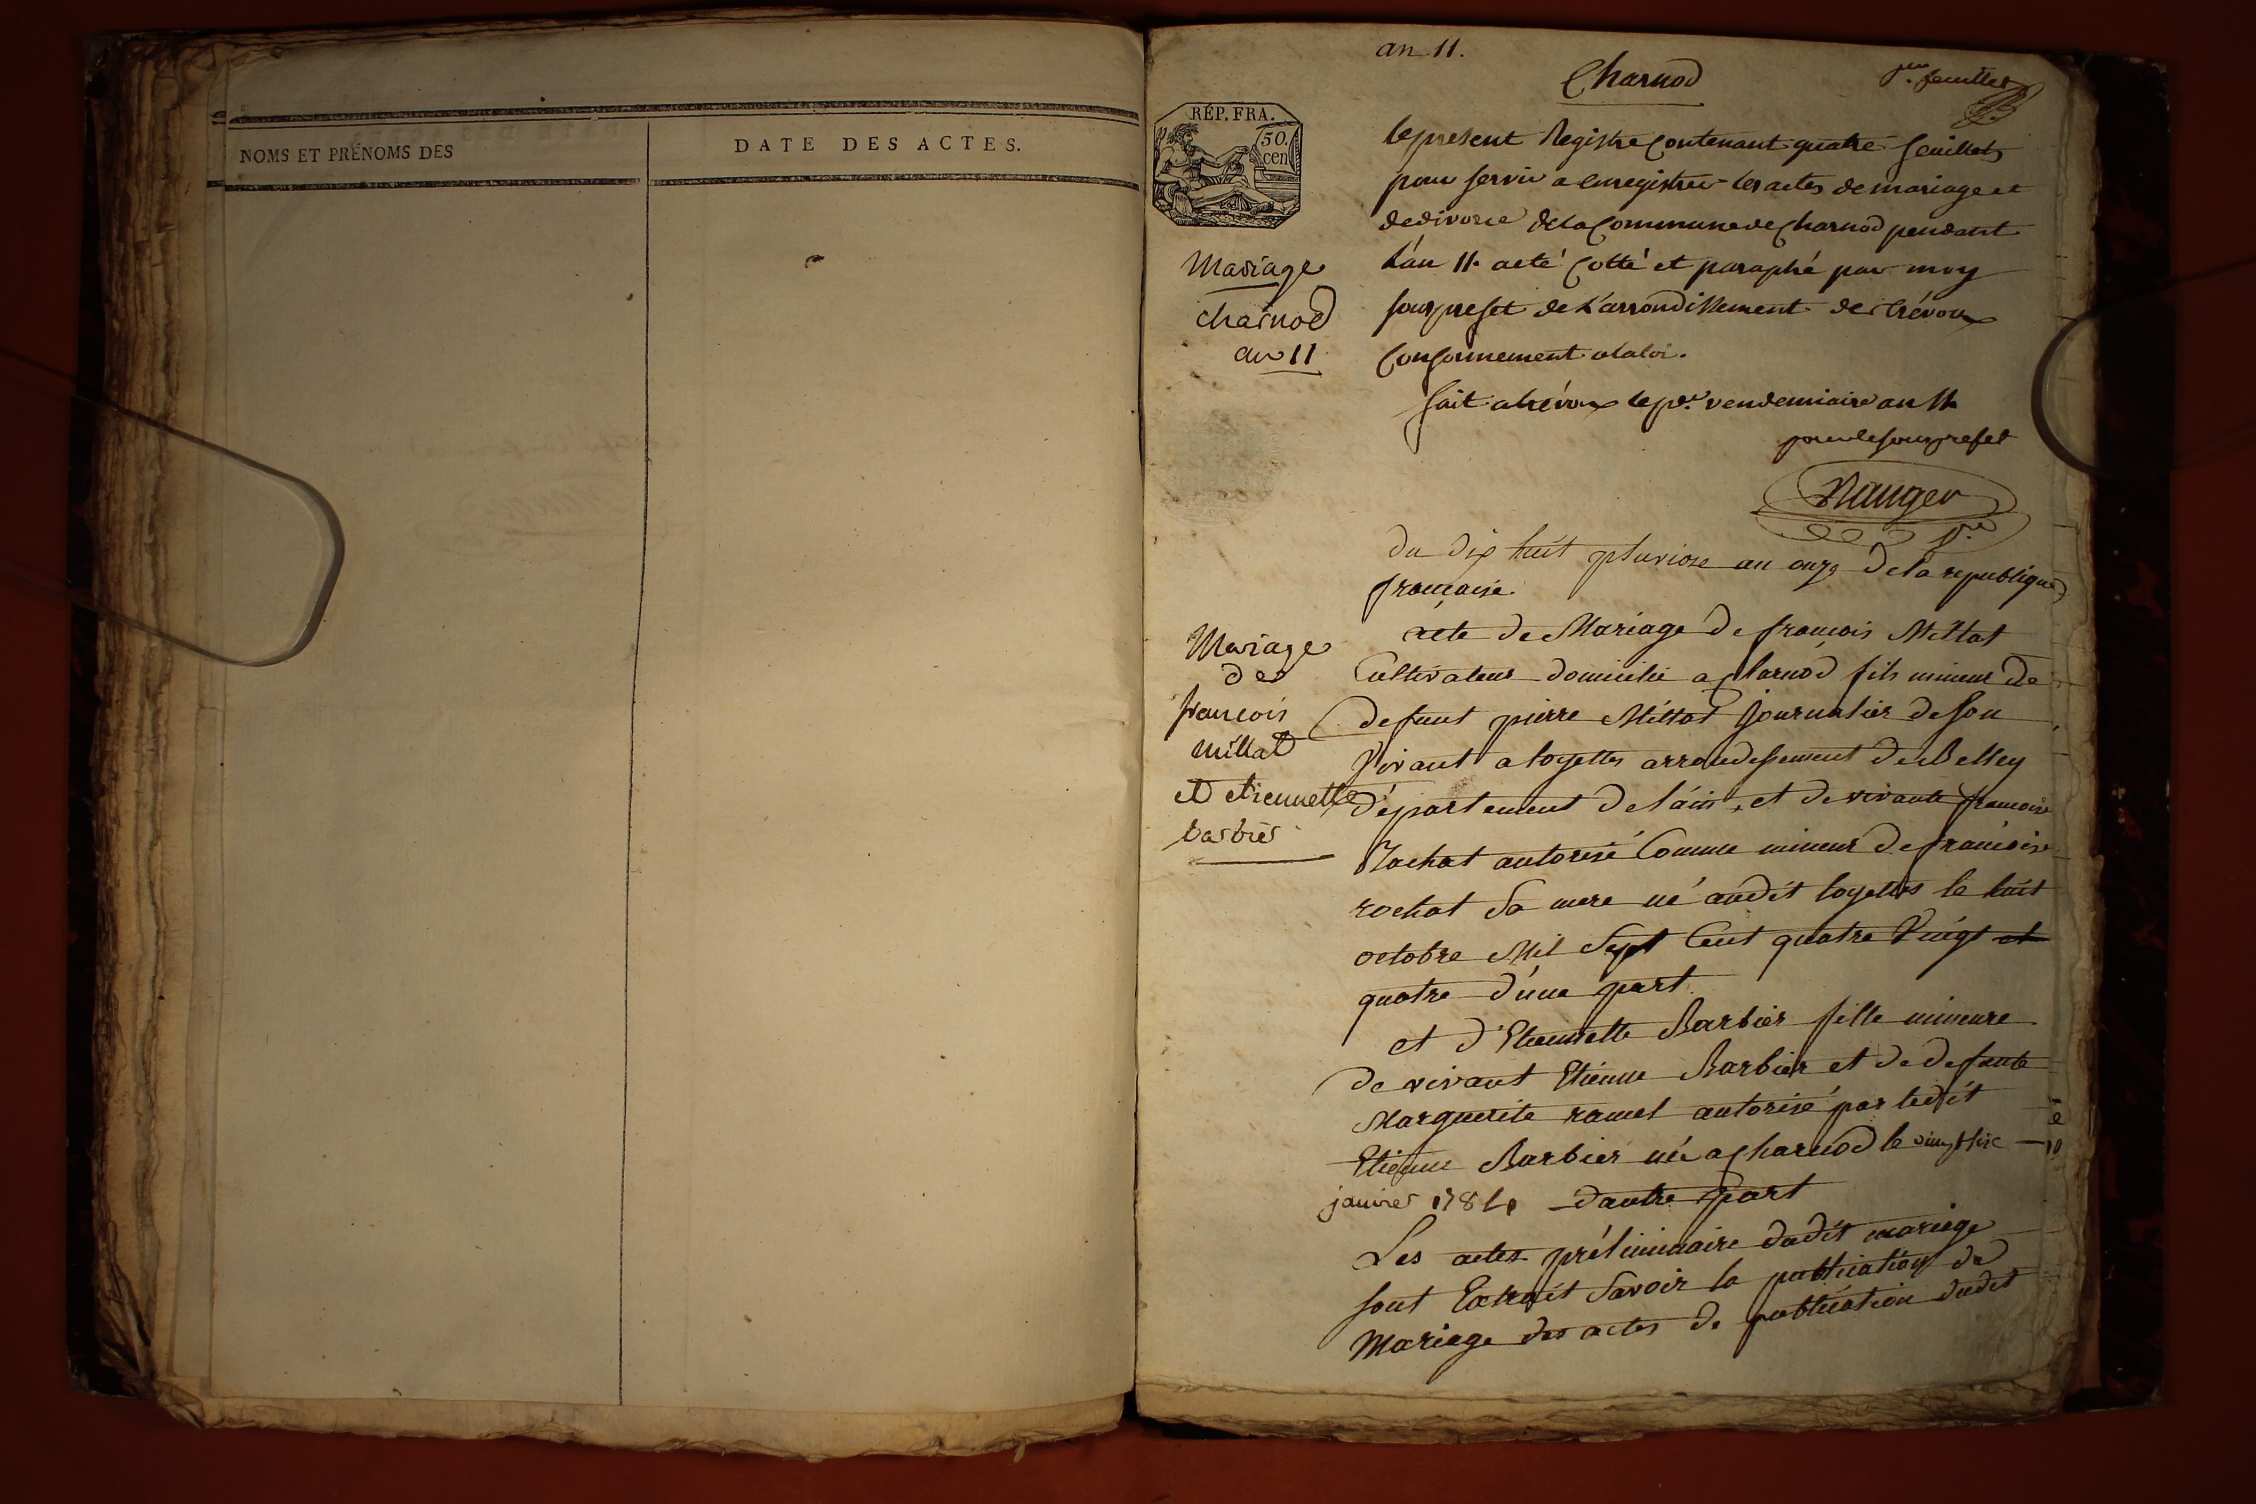 NOMS ET PRÉNOMS DES
DATE DES ACTES.
an 11.
Charnod
per. feuillet
RÉP. FRA.
50.
cen
le present Registre Contenant quatre feuillets
pour servir a enregistrer les actes de mariage et
de divorce de la Commune de Charnod pendant
L'an 11. a eté Cotté et paraphé par moy
souspréfet de L'arrondissement de Trévoux
Conformement a la loi.
fait a trévoux le per. vendemiaire an 11
pour le souspréfet
Nauger
Mariage
charnod
an 11
du dix huit pluviose an onze De la republique
françaisse
Mariage
de
francois
millat
et etiennette
barbier
acte de Mariage De francois Millat
Cultivateur domicilié a Charnod fils mineur De
defunt pierre Millat Journalier de son
Vivant a loyettes arrondissement De Belley
département De l'ain, et de vivante francoise
Rochat autorisé Comme mineur De francoise
rochat Sa mere né audit loyettes le huit
octobre Mil Sept Cent quatre Vingt et
quatre d'une part
et d'Etiennette Barbier fille mineure
de vivant Etienne Barbier et de defunte
Marguerite ramel autorisé par ledit
Etienne Barbier née a Charnod le vingt six
janvier 1784 d'autre part
Les actes préliminaire dudit mariage
sont Extrait Savoir la publication de
Mariage des actes de publication dudit